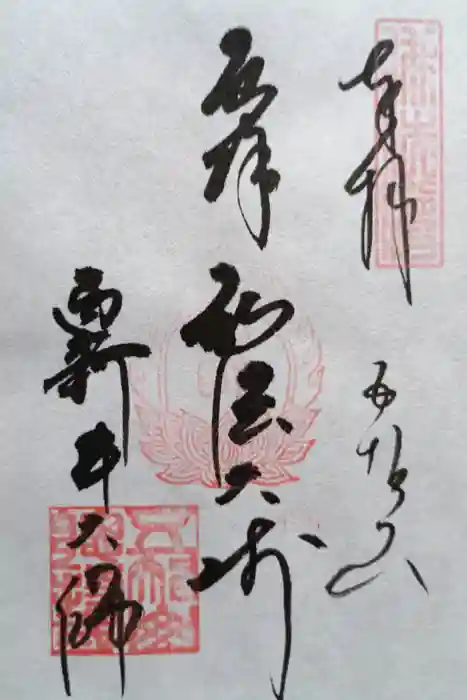 奉拝 五智山
厄除 弘法大師
西新井大師